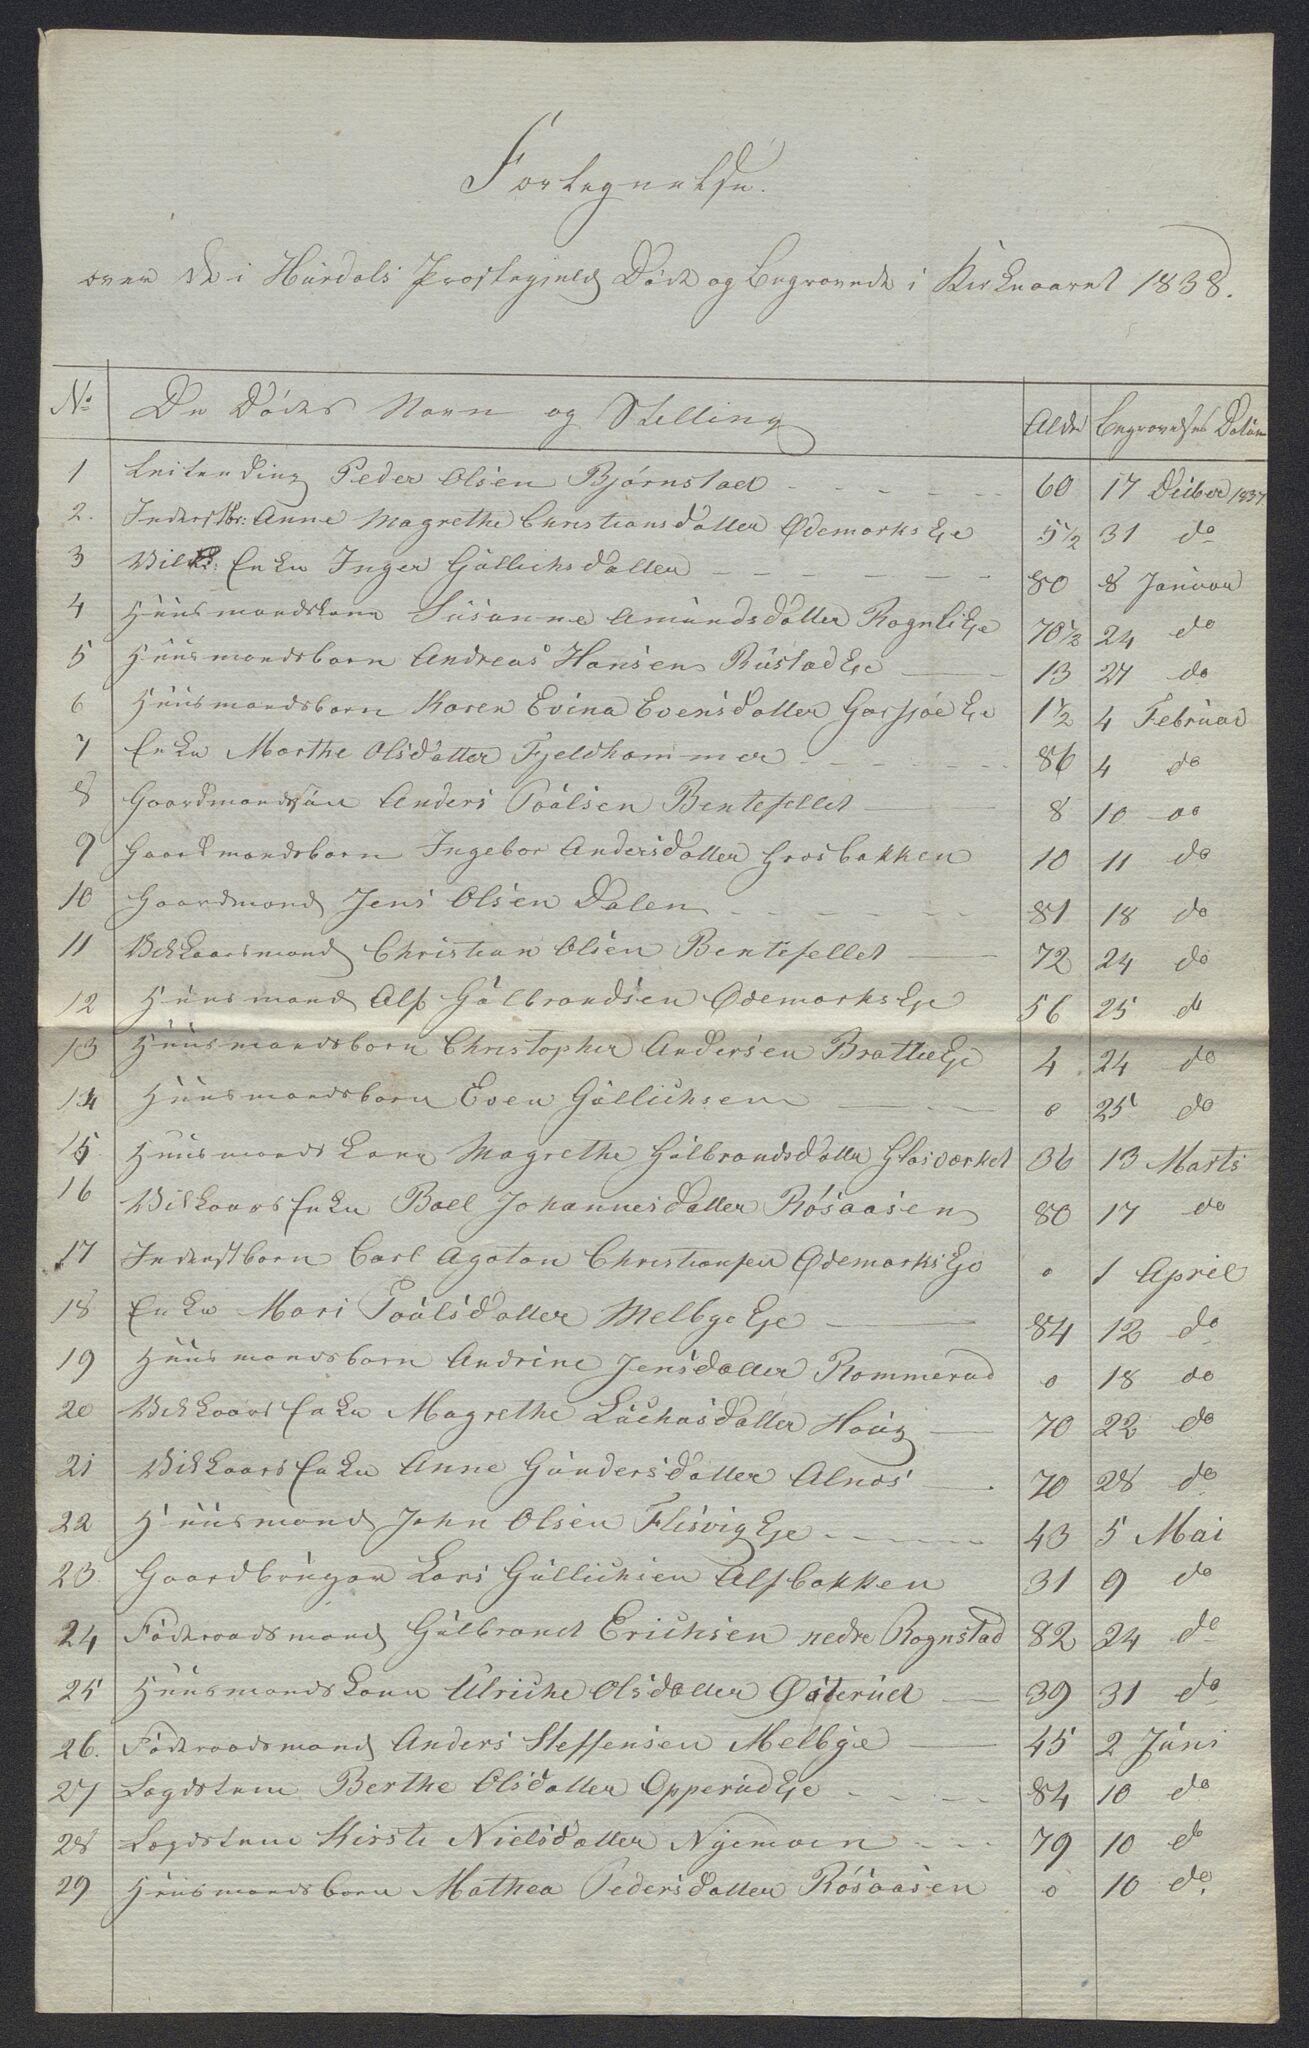 Fortegnelse.
over de i Hürdals Præstegjeld Döde og Begravede i Kirkeaaret 1838.
No De Dödes Navn og Stilling Alder Begravelses Datüm
1 Peder Olsen Björnstad 60 17 Decber 1837
2. Inderstbr: Anne Magrethe Christiansdatter Ødemarks Eje 5 1/2 31 do
3 Vilk: Enke Inger Güllichsdatter 80 8 Janüar
4 Hüüsmandskone Süsanne Amündsdatter Rognli Eje 70 1/2 24 do
5 Hüüsmandsbarn Andreas Hansen Rüstad Eje 13 27 do
6 Hüüsmandsbarn Karen Evina Evensdatter Garsjöe Eje 1 1/2 4 Febrüar
7 Enke Marthe Olsdatter Fjeldhammer 86 4 do
8 Gaardmandssön Anders Poülsen Bentefellet 8 10 do
9 Gaardmandsbarn Ingebor Andersdatter Grosbakken 10 11 do
10 Gaardmand Jens Olsen Dalen 81 18 do
11 Vilkaarsmand Christian Olsen Bentefellet 72 24 do
12 Hüüsmand Alf Gülbrandsen Ødemarks Eje 56 25 do
13 Hüüsmandsbarn Christopher Andersen Bratlie Eje 4 24 do
14 Hüüsmandsbarn Even Güllichsen 0 25 do
15. Hüüsmandskone Magrethe Gülbrandsdatter Glasværket 36 13 Marts
16 Vilkaars Enke Boel Johannesdatter Rösaasen 80 17 do
17 Inderstbarn Carl Agaton Christiansen Ødemarks Eje 0 1 April
18 Enke Mari Poülsdatter Melbye Eje 84 12 do
19 Hüüsmandsbarn Andrine Jensdatter Rommerud 0 18 do
20 Vilkaars Enke Magrethe Lüchasdatter Haüg 70 22 do
21 Vilkaars Enke Anne Gündersdatter Alnæs 70 28 do
22 Hüüsmand John Olsen Flisvig Eje 43 5 Mai
23. Gaardbrüger Lars Güllichsen Alfbakken 31 9 do
24 Föderaadsmand Gülbrand Erichsen nedre Rognstad 82 24 do
25 Hüüsmandskone Ulriche Olsdatter Østerüd 39 31 do
26. Föderaadsmand Anders Steffensen Melbye 45 2 Jüni
27 Lægdslem Berthe Olsdatter Opperüd Eje 84 10 do
28 Lægdslem Kirsti Nielsdatter Nyemoen 79 10 do
29 Hüüsmandsbarn Mathea Pedersdatter Rösaasen 0 10 do.